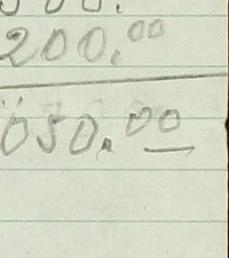 200.00
050.00